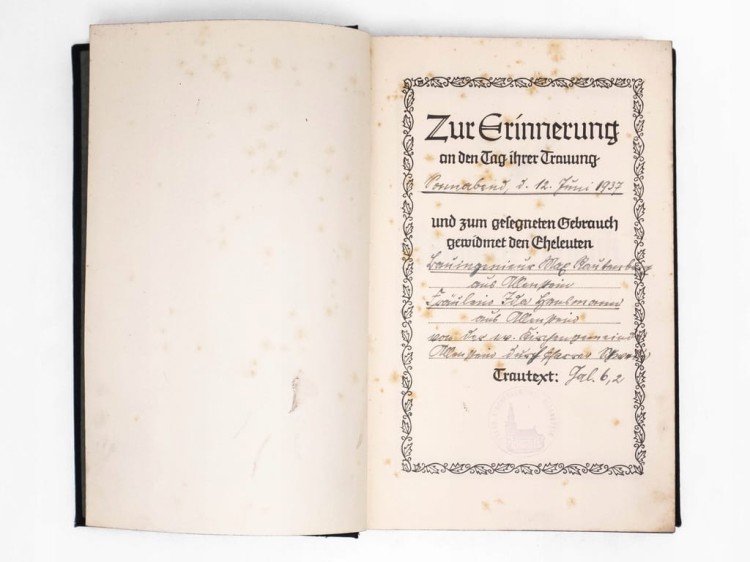 Zur Erinnerung
an den Tag ihrer Trauung
Sonnabend, d. 12. Juni 1937
und zum gesegneten Gebrauch
gewidmet den Eheleuten
Bauingenieur Max Rautenberg
aus Allenstein
Fräulein Ida
aus Allenstein
von der ev. Kirchengemeinde
Allenstein durch Pfarrer
Trautext: Gal. 6,2